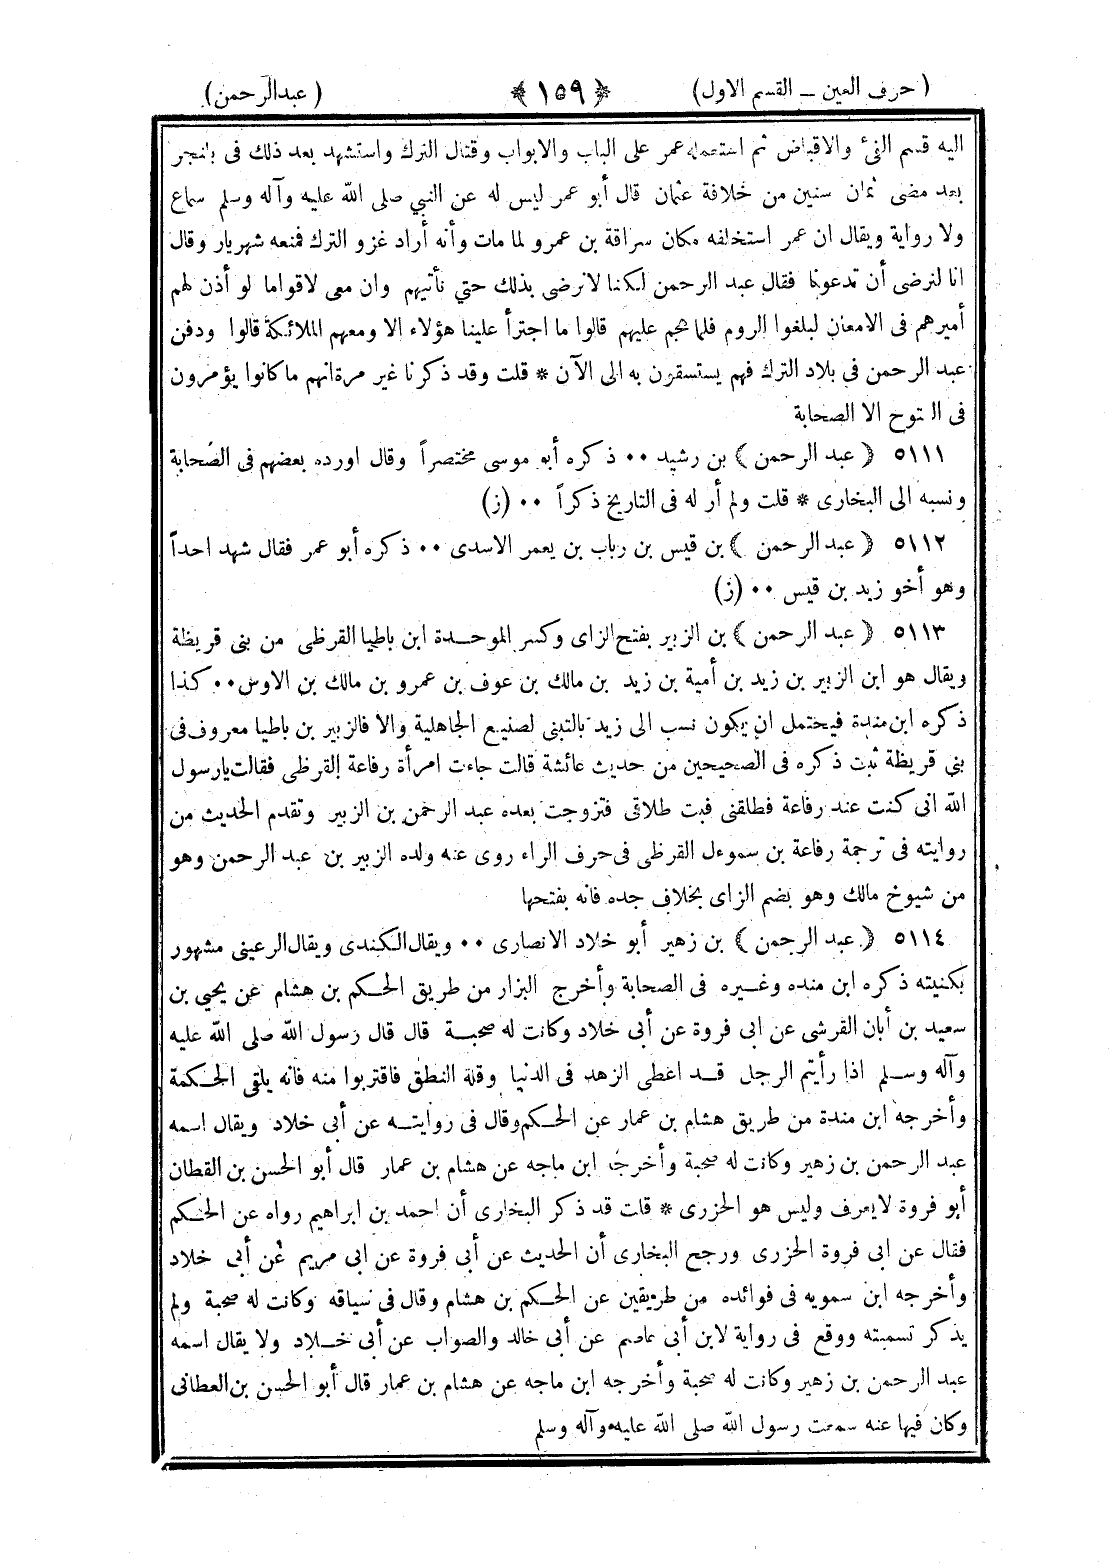 ( حرف العين ــ القسم الاول ) ﴿ ١٥٩ ﴾ ( عبدالرحمن )
اليه قسم الفيء والاقباض ثم استعمله عمر على الباب والابواب وقتال الترك واستشهد بعد ذلك فى بلنجر
بعد مضى ثمان سنين من خلافة عثمان قال أبو عمر ليس له عن النبي صلى الله عليه وآله وسلم سماع
ولا رواية ويقال ان عمر استخلفه مكان سراقة بن عمرو لما مات وأنه أراد غزو الترك فمنعه شهريار وقال
انا لنرضى أن تدعونا فقال عبد الرحمن لكنا لانرضى بذلك حتي نأتيهم وان معى لاقواما لو أذن لهم
أميرهم فى الامعان لبلغوا الروم فلما هجم عليهم قالوا ما اجترأ علينا هؤلاء الا ومعهم الملائكة قالوا ودفن
عبد الرحمن فى بلاد الترك فهم يستسقون به الى الآن * قلت وقد ذكرنا غير مرة انهم ما كانوا يؤمرون
فى الفتوح الا الصحابة
٥١١١ ﴿ عبد الرحمن ﴾ بن رشيد ٠٠ ذكره أبو موسى مختصراً وقال اورده بعضهم فى الصحابة
ونسبه الى البخارى * قلت ولم أر له فى التاريخ ذكراً ٠٠ (ز)
٥١١٢ ﴿ عبد الرحمن ﴾ بن قيس بن رباب بن يعمر الاسدى ٠٠ ذكره أبو عمر فقال شهد احداً
وهو أخو زيد بن قيس ٠٠ (ز)
٥١١٣ ﴿ عبد الرحمن ﴾ بن الزبير بفتح الزاى وكسر الموحدة ابن باطيا القرظى من بنى قريظة
ويقال هو ابن الزبير بن زيد بن أمية بن زيد بن مالك بن عوف بن عمرو بن مالك بن الاوس ٠٠ كذا
ذكره ابن مندة فيحتمل ان يكون نسب الى زيد بالتبنى لصنيع الجاهلية والا فالزبير بن باطيا معروف فى
بني قريظة ثبت ذكره فى الصحيحين من حديث عائشة قالت جاءت امرأة رفاعة القرظى فقالت يارسول
الله انى كنت عند رفاعة فطلقنى فبت طلاقى فتزوجت بعده عبد الرحمن بن الزبير وتقدم الحديث من
روايته فى ترجمة رفاعة بن سموءل القرظى فى حرف الراء روى عنه ولده الزبير بن عبد الرحمن وهو
من شيوخ مالك وهو بضم الزاى بخلاف جده فانه بفتحها
٥١١٤ ﴿ عبد الرحمن ﴾ بن زهير أبو خلاد الانصارى ٠٠ ويقال الكندى ويقال الرعينى مشهور
بكنيته ذكره ابن منده وغيره فى الصحابة وأخرج البزار من طريق الحكم بن هشام عن يحيي بن
سعيد بن أبان القرشى عن ابى فروة عن أبى خلاد وكانت له صحبة قال قال رسول الله صلى الله عليه
وآله وسلم اذا رأيتم الرجل قد اعطى الزهد فى الدنيا وقلة النطق فاقتربوا منه فانه يلقى الحكمة
وأخرجه ابن مندة من طريق هشام بن عمار عن الحكم وقال فى روايته عن أبى خلاد ويقال اسمه
عبد الرحمن بن زهير وكانت له صحبة وأخرجه ابن ماجه عن هشام بن عمار قال أبو الحسن بن القطان
أبو فروة لايعرف وليس هو الجزرى * قلت قد ذكر البخارى أن احمد بن ابراهيم رواه عن الحكم
فقال عن ابى فروة الجزرى ورجح البخارى أن الحديث عن أبى فروة عن ابى مريم عن أبى خلاد
وأخرجه ابن سمويه فى فوائده من طريقين عن الحكم بن هشام وقال فى سياقه وكانت له صحبة ولم
يذكر تسميته ووقع فى رواية لابن أبى عاصم عن أبى خالد والصواب عن أبى خلاد ولا يقال اسمه
عبد الرحمن بن زهير وكانت له صحبة وأخرجه ابن ماجه عن هشام بن عمار قال أبو الحسن بن العطانى
وكان فيها عنه سمعت رسول الله صلى الله عليه وآله وسلم